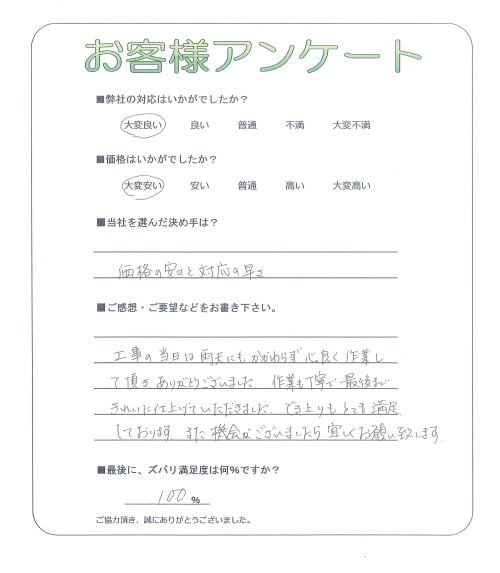 お客様アンケート
■弊社の対応はいかがでしたか？
大変良い 良い 普通 不満 大変不満
■価格はいかがでしたか？
大変安い 安い 普通 高い 大変高い
■当社を選んだ決め手は？
価格の安さと対応の早さ
■ご感想・ご要望などをお書き下さい。
工事の当日は雨天にもかかわらず心良く作業し
て頂きありがとうございました。作業も丁寧で最後まで
きれいに仕上げていただきました。でき上りもとても満足
しております。また機会がございましたら宜しくお願い致します。
■最後に、ズバリ満足度は何%ですか？
100%
ご協力頂き、誠にありがとうございました。